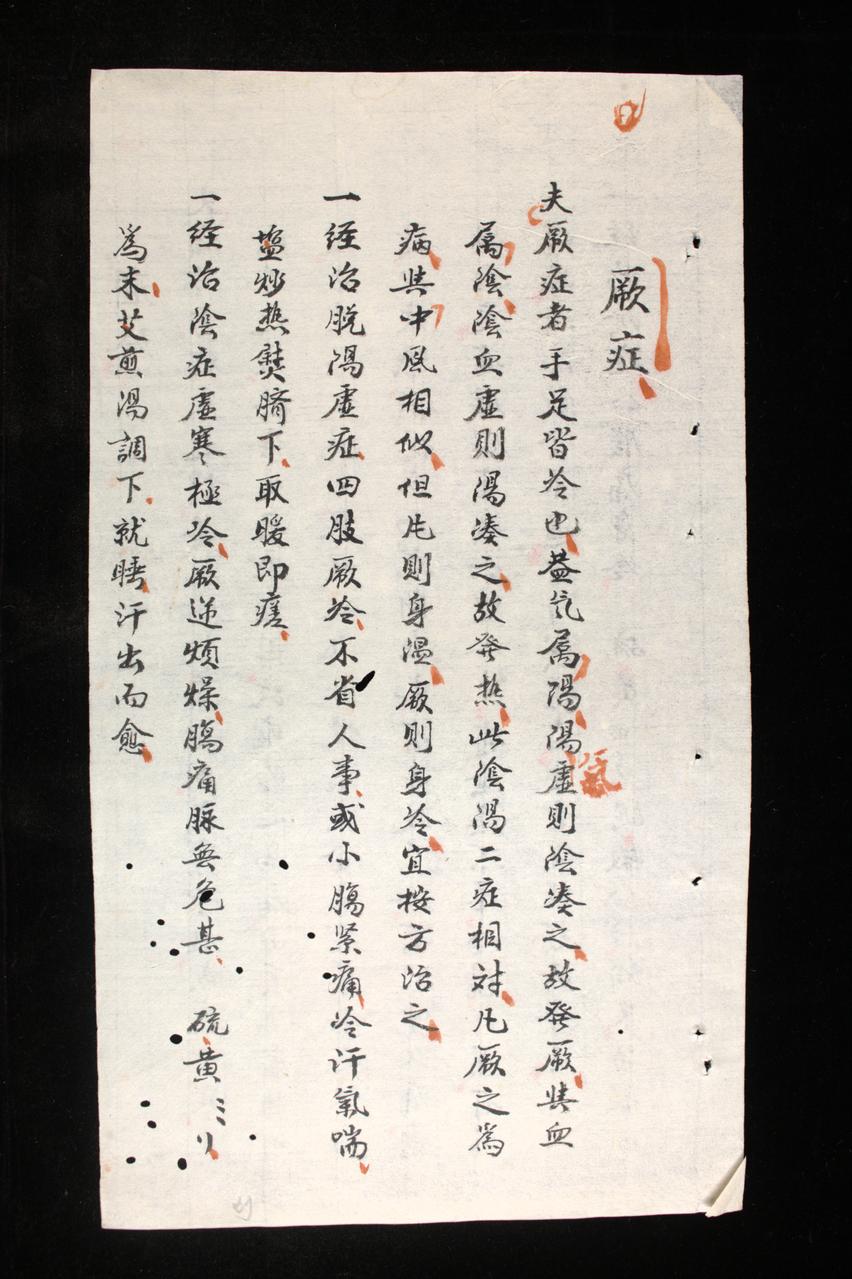 厥症
夫厥症者手足皆冷也蓋气属陽陽虚則陰凑之故發厥其血
氣
属陰陰血虚則陽凑之故發熱此陰陽二症相对凡厥之爲
病與中風相似但凡則身温厥則身冷宜按方治之
一経治脱陽虚症四肢厥冷不省人事或小膓紧痛冷汗氣喘
塩炒热熨臍下取暖即瘥
一経治陰症虚寒極冷厥逆煩燥膓痛脉無危甚 硫黄
爲末艾煎湯調下就睡汗出而愈